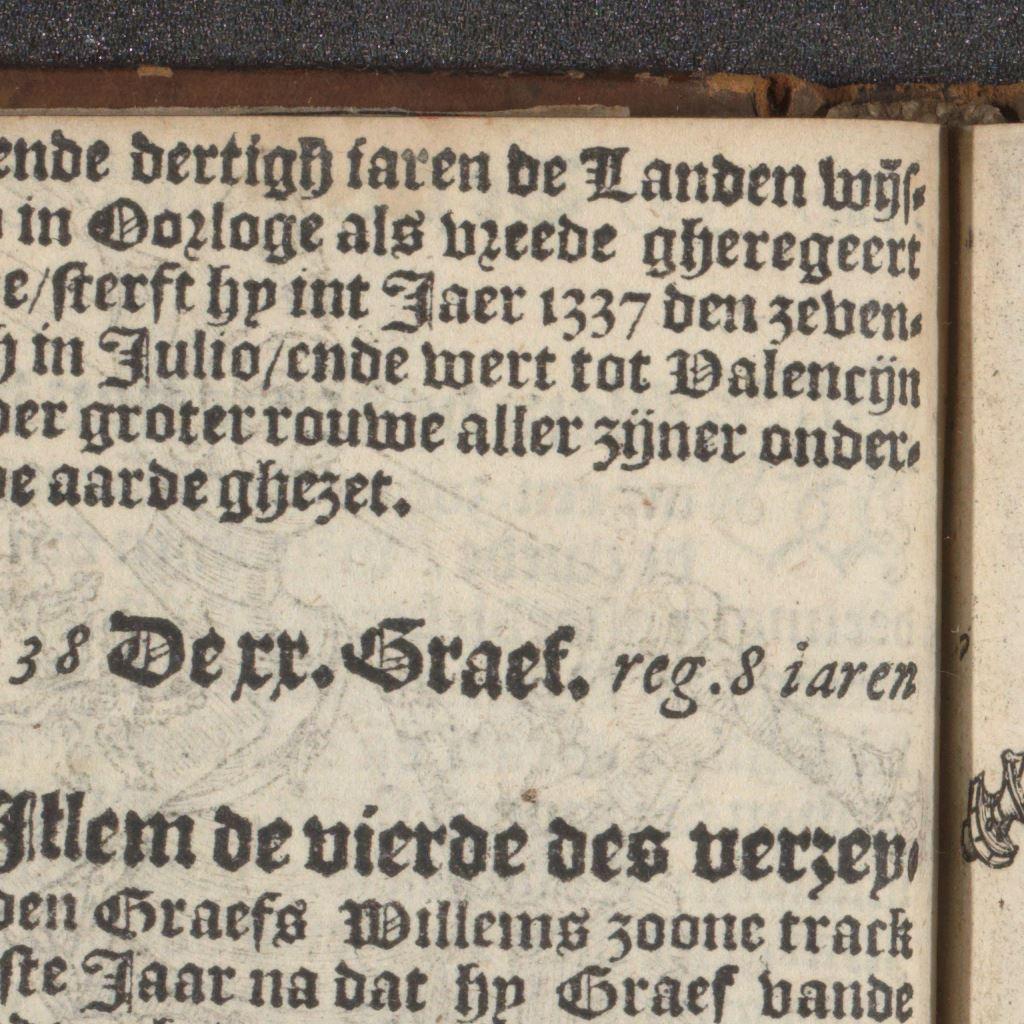 ende dertigh iaren de Landen wijs-
in Oorloge als vreede gheregeert
e/sterft hy int Jaer 1337 den zeven-
h in Julio/ende wert tot Valencijn
der groter rouwe aller zijner onder-
de aarde ghezet.
38 De xx. Graef. reg. 8 iaren
Illem de vierde des verzey-
den Graefs Willems zoone track
ste Jaar na dat hy Graef vande